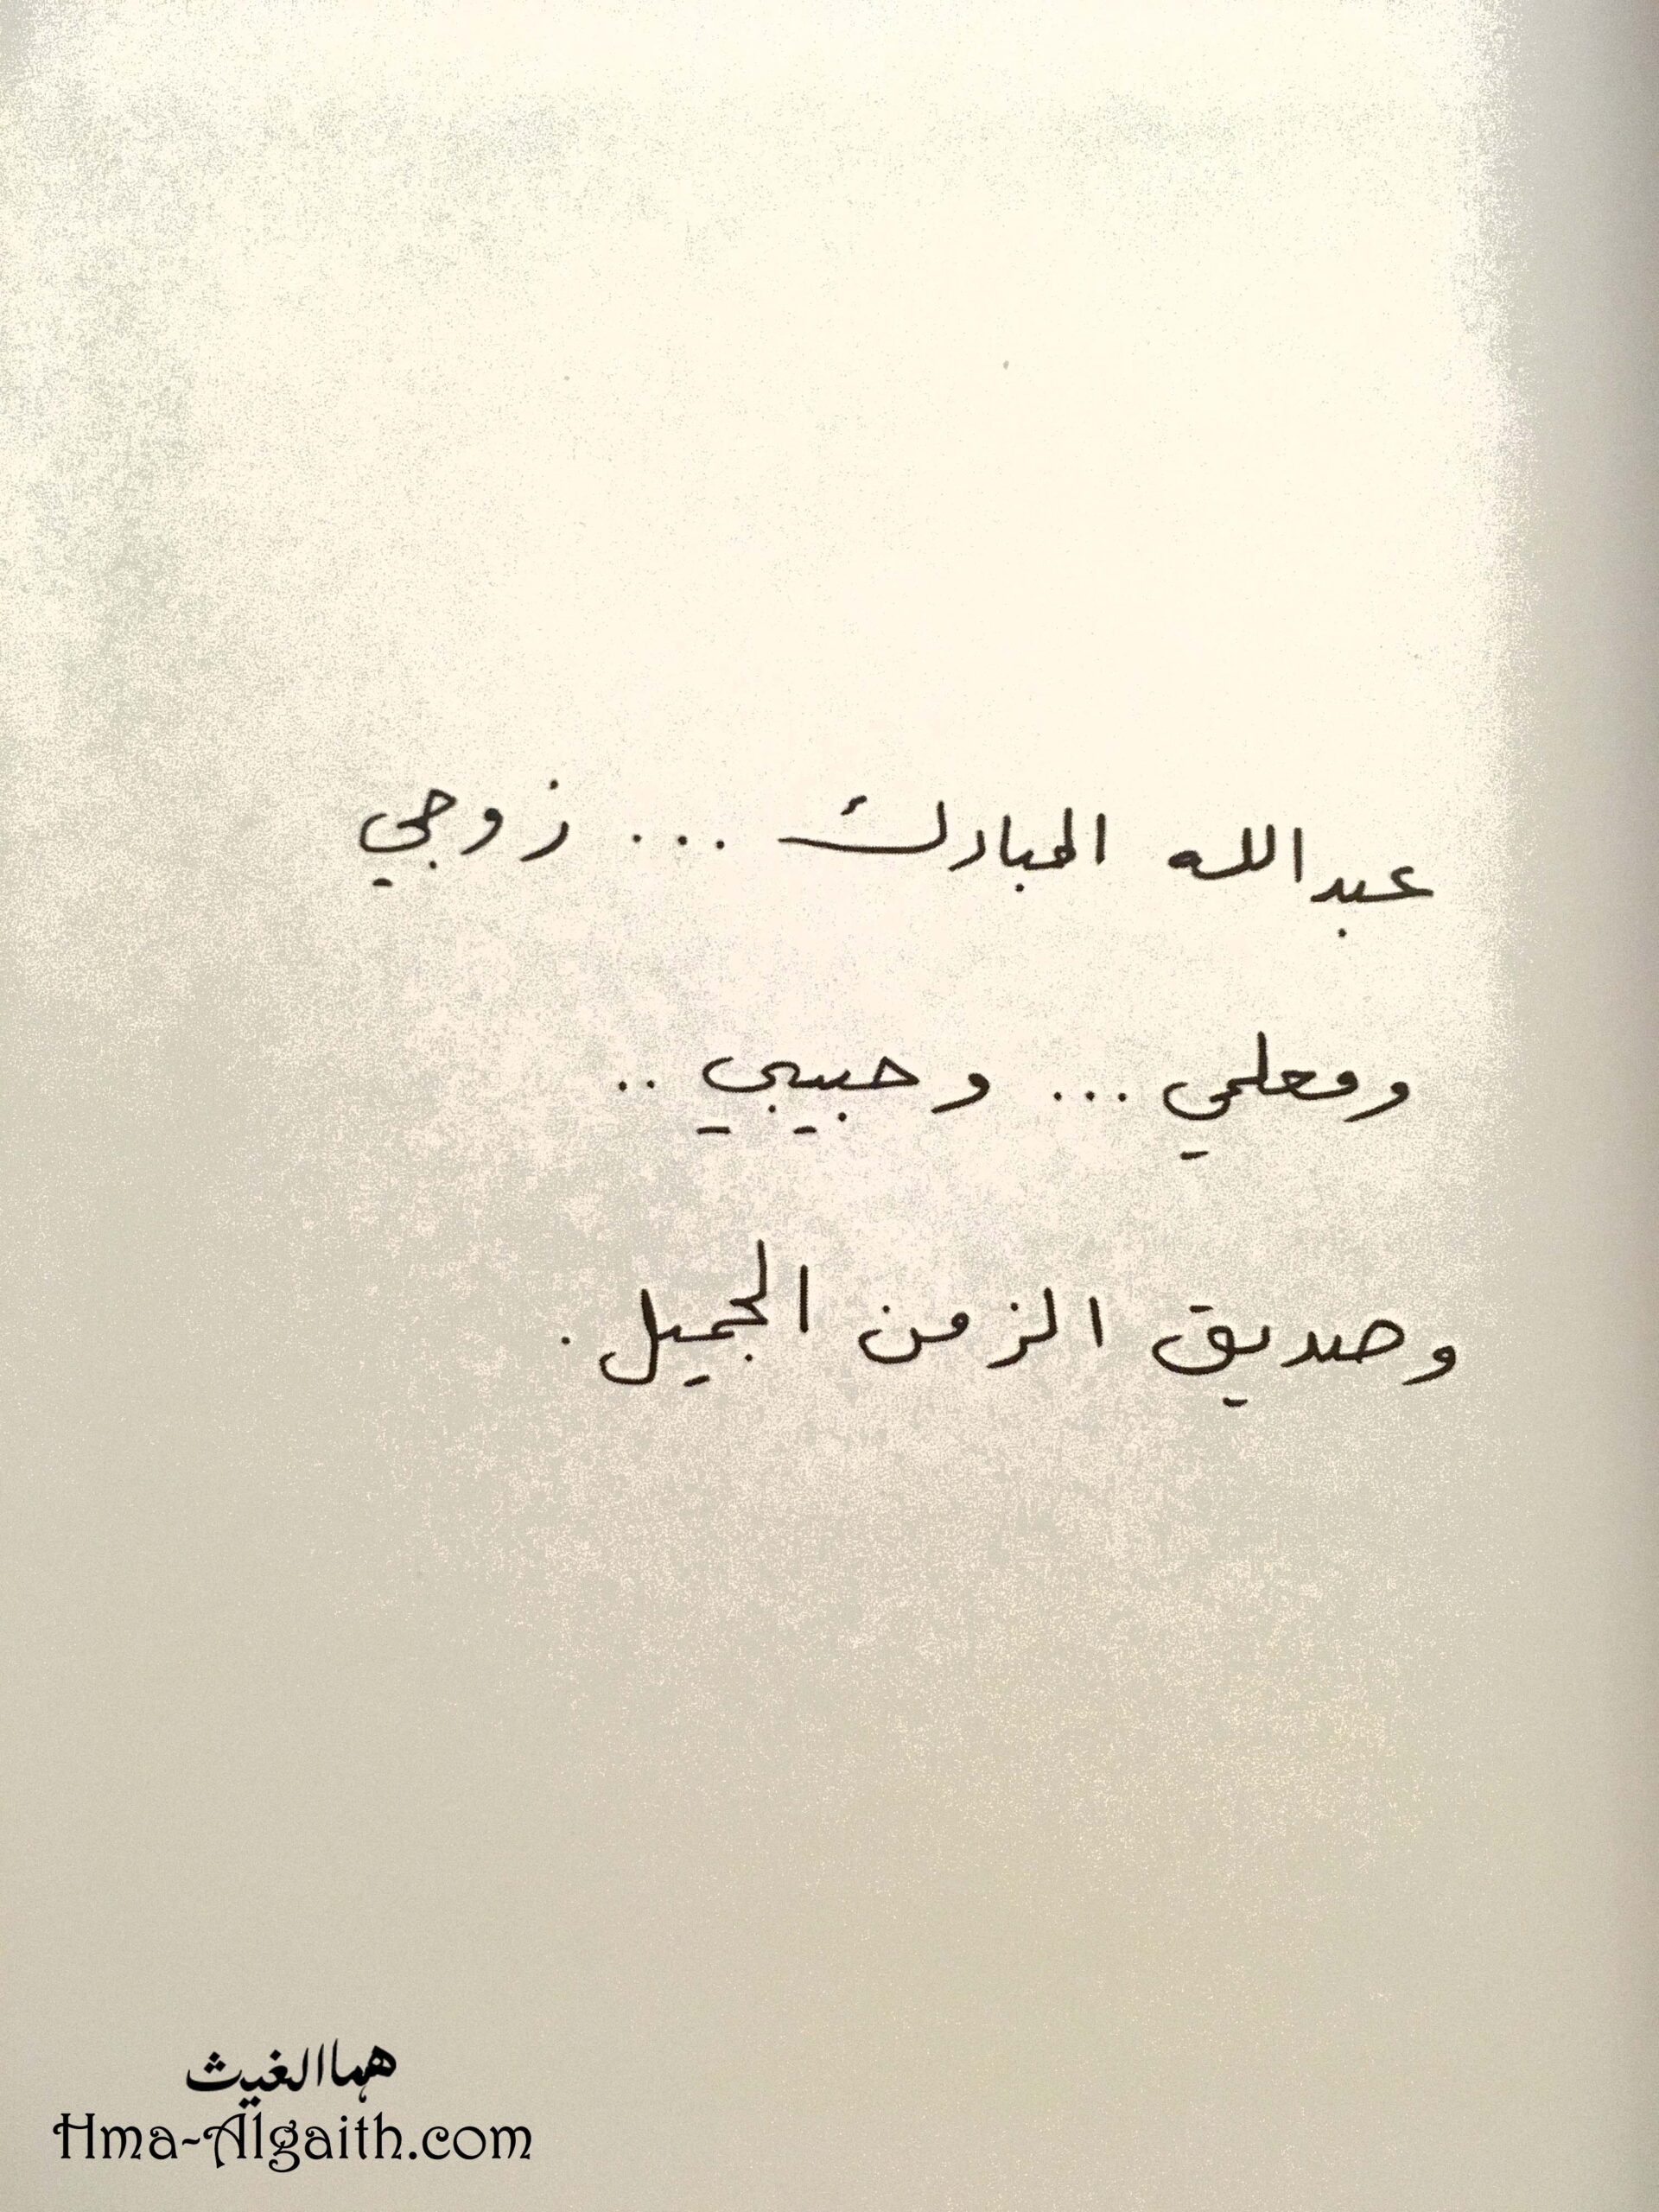 عبدالله المبارك ... زوجي
ومعلمي ... وحبيبي ..
وصديق الزمن الجميل .
هما الغيث
Hma-Algaith.com